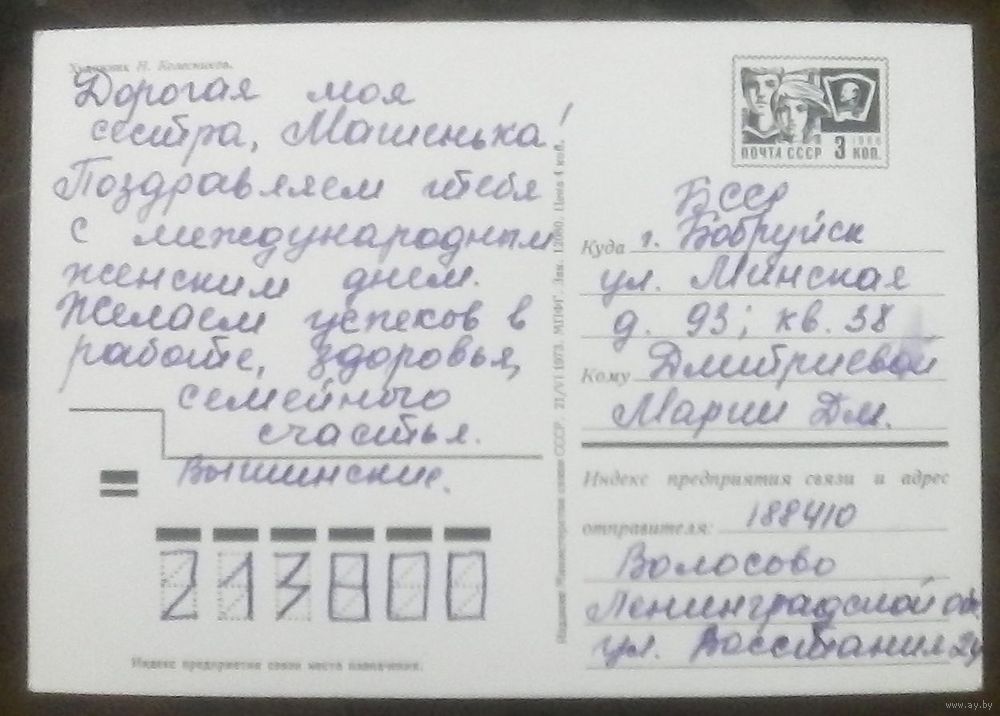 Художник Н. Колесников.
Дорогая моя
сестра, Машенька!
Поздравляем тебя
с международным
женским днем.
Желаем успехов в
работе, здоровья,
семейного
счастья.
Вышинские.
213800
Индекс предприятия связи места назначения.
Издание Министерства связи СССР. 21/VI 1973. МПФГ. Зак. 12080. Цена 4 коп.
ПОЧТА СССР 3 КОП.
1966
БССР
Куда г. Бобруйск
ул. Минская
д. 93; кв. 38
Кому Дмитриевой
Марии Дм.
Индекс предприятия связи и адрес
отправителя: 188410
Волосово
Ленинградской обл.
ул. Восстания
www.ay.by